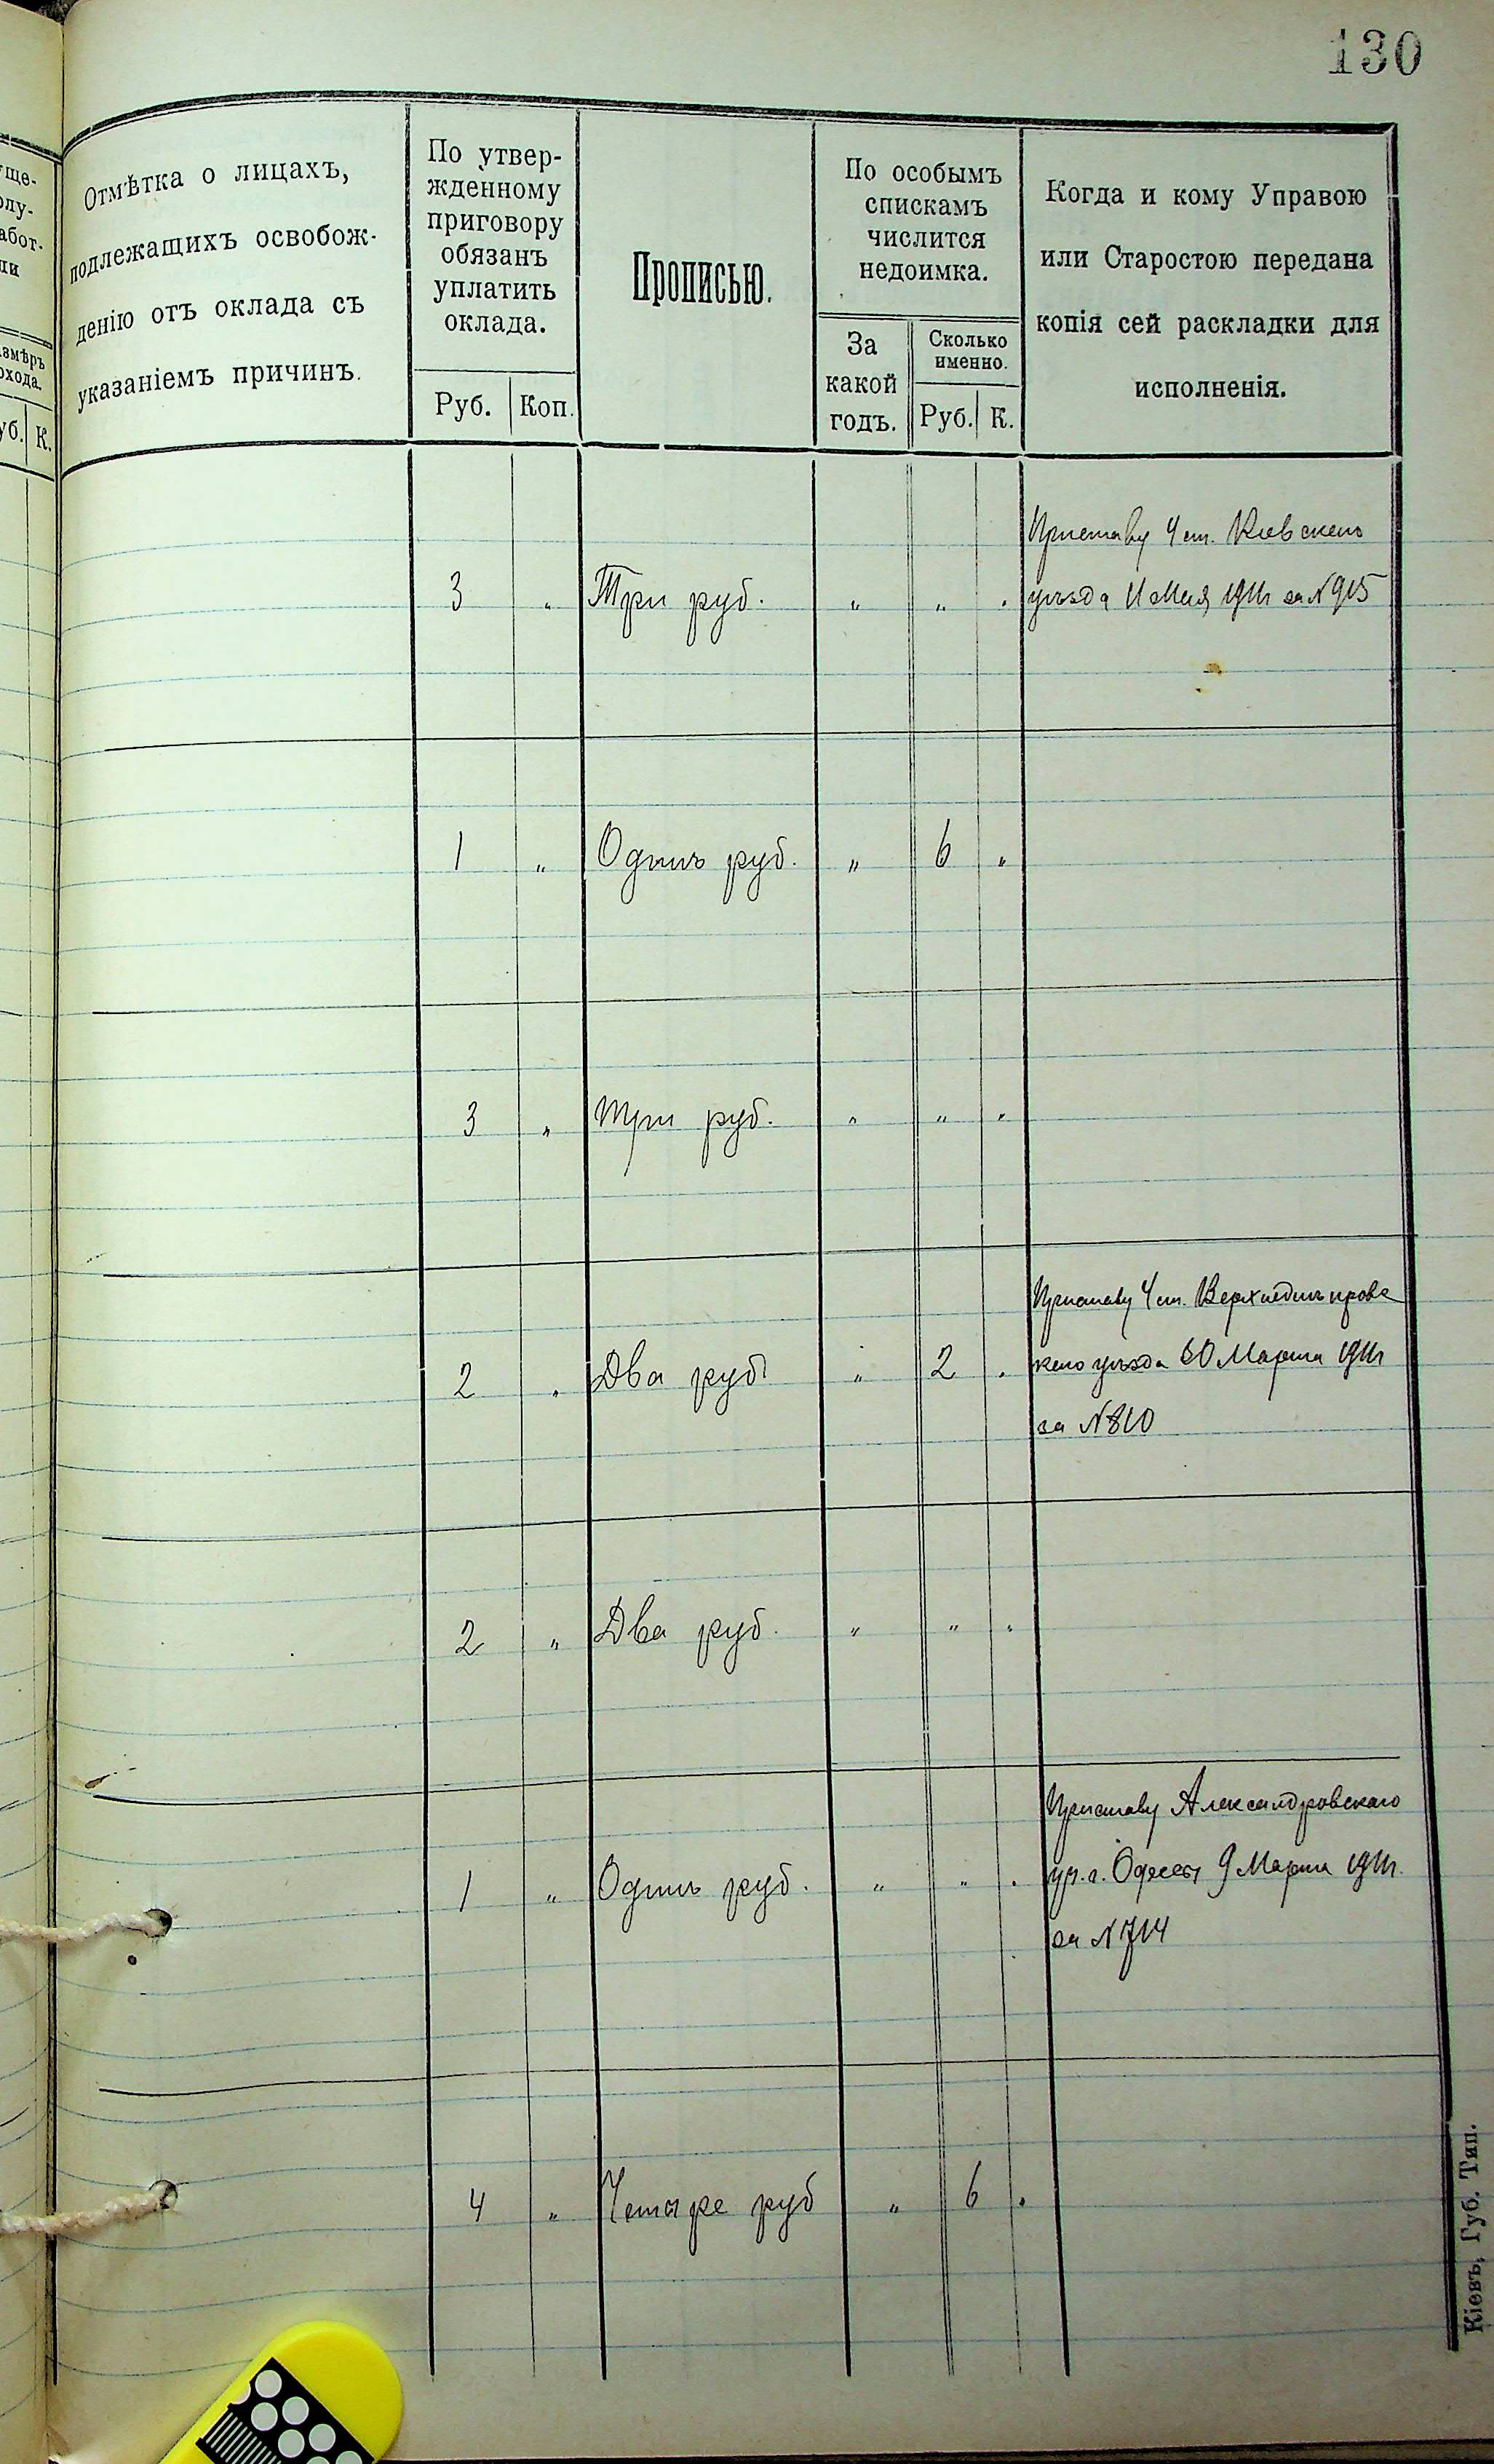 130
уще-
олу-
абот-
ли
азмѣръ
охода.
уб. К.
Отмѣтка о лицахъ,
подлежащихъ освобож-
денію отъ оклада съ
указаніемъ причинъ.
По утвер-
жденному
приговору
обязанъ
уплатить
оклада.
Руб. Коп.
Прописью.
По особымъ
спискамъ
числится
недоимка.
За
какой
годъ.
Сколько
именно.
Руб. К.
Когда и кому Управою
или Старостою передана
копія сей раскладки для
исполненія.
Приставу 4 ст. Кіевскаго
3 " Три руб. " " " уѣзда 11 Мая 1911г за N 915
1 " Одинъ руб. " 6 "
3 " Три руб. " " "
Приставу 4 ст. Верхнеднѣпровс
2 " Два руб " 2 " каго уѣзда 30 Марта 1911г
за N 810
2 " Два руб. " " "
Приставу Александровскаго
1 " Одинъ руб. " " " уч. г. Одессы 9 Марта 1911г.
за N 714
4 " Четыре руб " 6 "
Кіевъ, Губ. Тип.